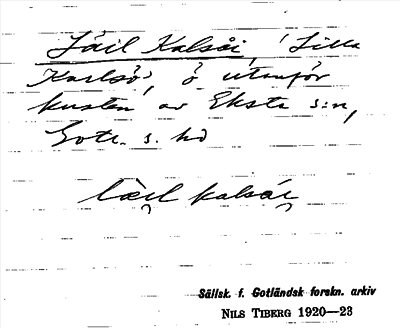 Låil Kalsåi, 'Lilla
Karlsö', ö utanför
kusten av Eksta s:n,
Gotl. s. hd
lài̯l kalsåi̯
Sällsk. f. Gotländsk forskn. arkiv
NILS TIBERG 1920—23